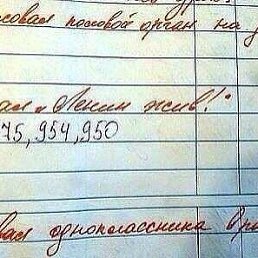 совал половой орган на д
ал „Ленин жив!"
75, 954, 950
вал одноклассника в р